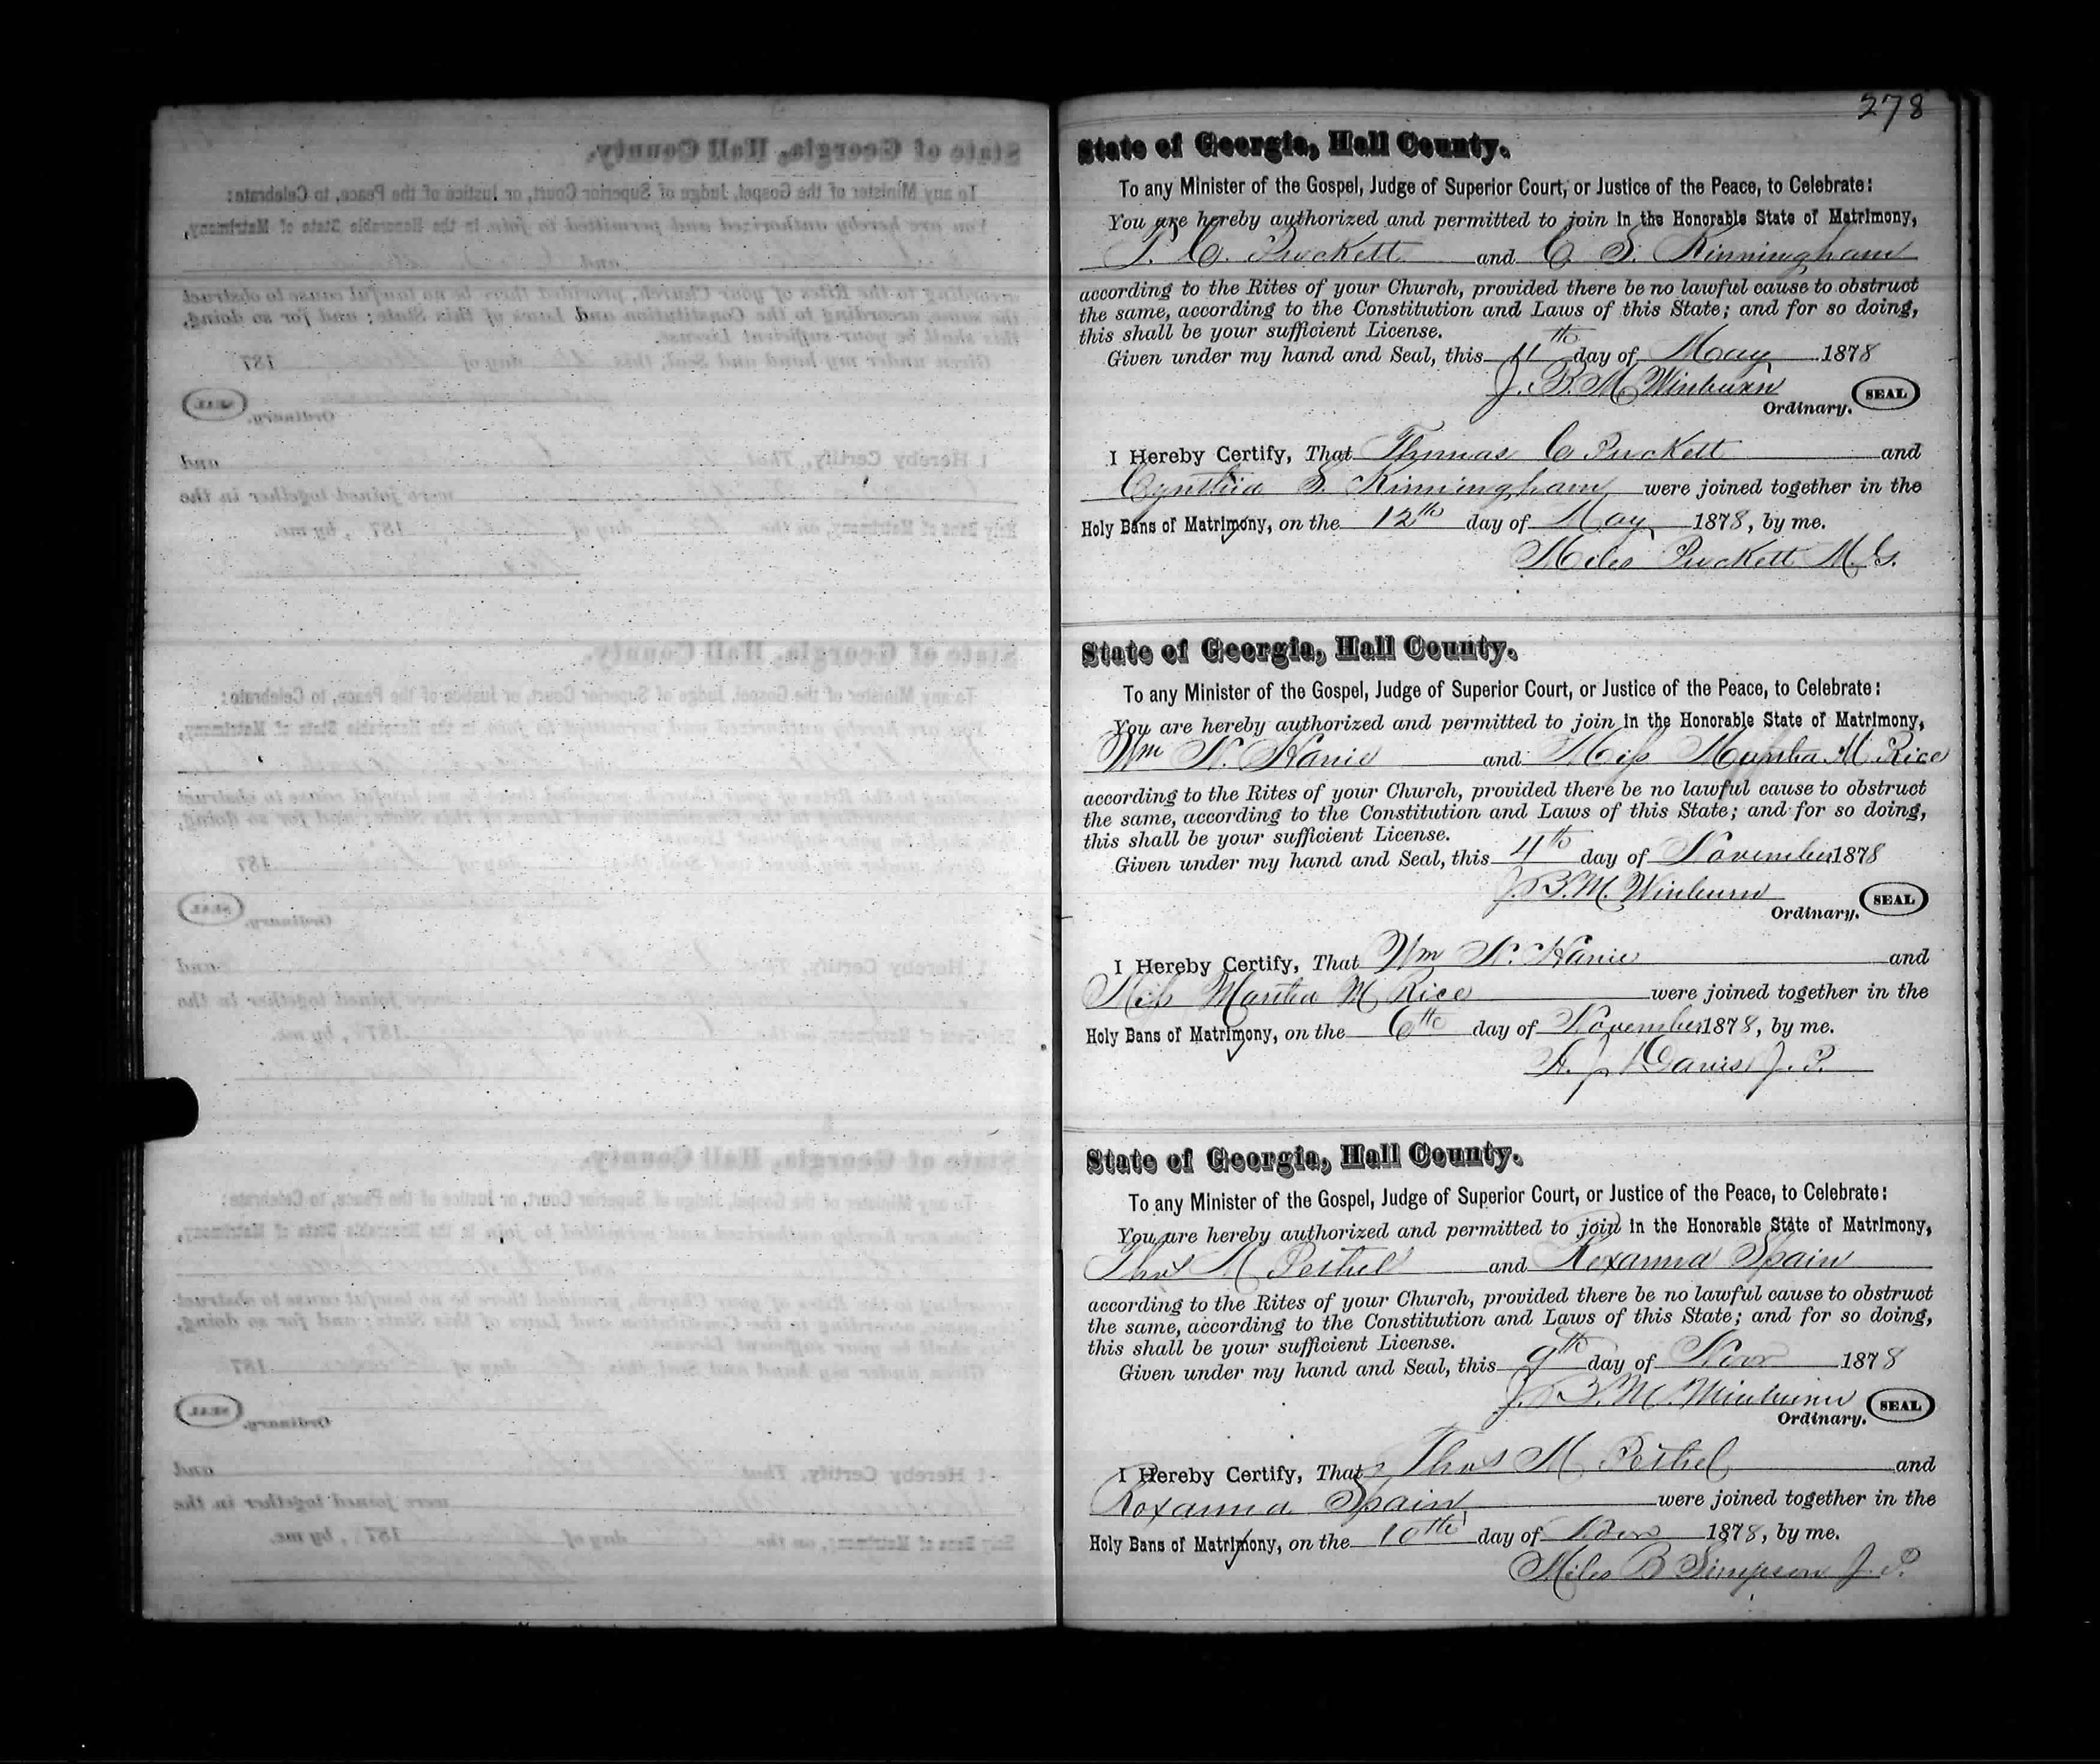 278
State of Georgia, Hall County.
To any Minister of the Gospel, Judge of Superior Court, or Justice of the Peace, to Celebrate:
You are hereby authorized and permitted to join in the Honorable State of Matrimony,
T. C. Puckett and C. S. Kinningham
according to the Rites of your Church, provided there be no lawful cause to obstruct
the same, according to the Constitution and Laws of this State; and for so doing,
this shall be your sufficient License.
Given under my hand and Seal, this 11th day of May 1878
J. B. M. Winburn
Ordinary. SEAL
I Hereby Certify, That Thomas C Puckett and
Cynthia S. Kinningham were joined together in the
Holy Bans of Matrimony, on the 12th day of May 1878, by me.
Miles Puckett M. G.
State of Georgia, Hall County.
To any Minister of the Gospel, Judge of Superior Court, or Justice of the Peace, to Celebrate:
You are hereby authorized and permitted to join in the Honorable State of Matrimony,
Wm N. Hanie and Miss Martha M. Rice
according to the Rites of your Church, provided there be no lawful cause to obstruct
the same, according to the Constitution and Laws of this State; and for so doing,
this shall be your sufficient License.
Given under my hand and Seal, this 4th day of November 1878
J. B. M. Winburn
Ordinary. SEAL
I Hereby Certify, That Wm N. Hanie and
Miss Martha M Rice were joined together in the
Holy Bans of Matrimony, on the 6th day of November 1878, by me.
J. Davis J. P.
State of Georgia, Hall County.
To any Minister of the Gospel, Judge of Superior Court, or Justice of the Peace, to Celebrate:
You are hereby authorized and permitted to join in the Honorable State of Matrimony,
Thos M Pethel and Roxanna Spain
according to the Rites of your Church, provided there be no lawful cause to obstruct
the same, according to the Constitution and Laws of this State; and for so doing,
this shall be your sufficient License.
Given under my hand and Seal, this 9th day of Nov 1878
J. B. M. Winburn
Ordinary. SEAL
I Hereby Certify, That Thos M Pethel and
Roxanna Spain were joined together in the
Holy Bans of Matrimony, on the 10th day of Nov 1878, by me.
Miles B Simpson J. P.